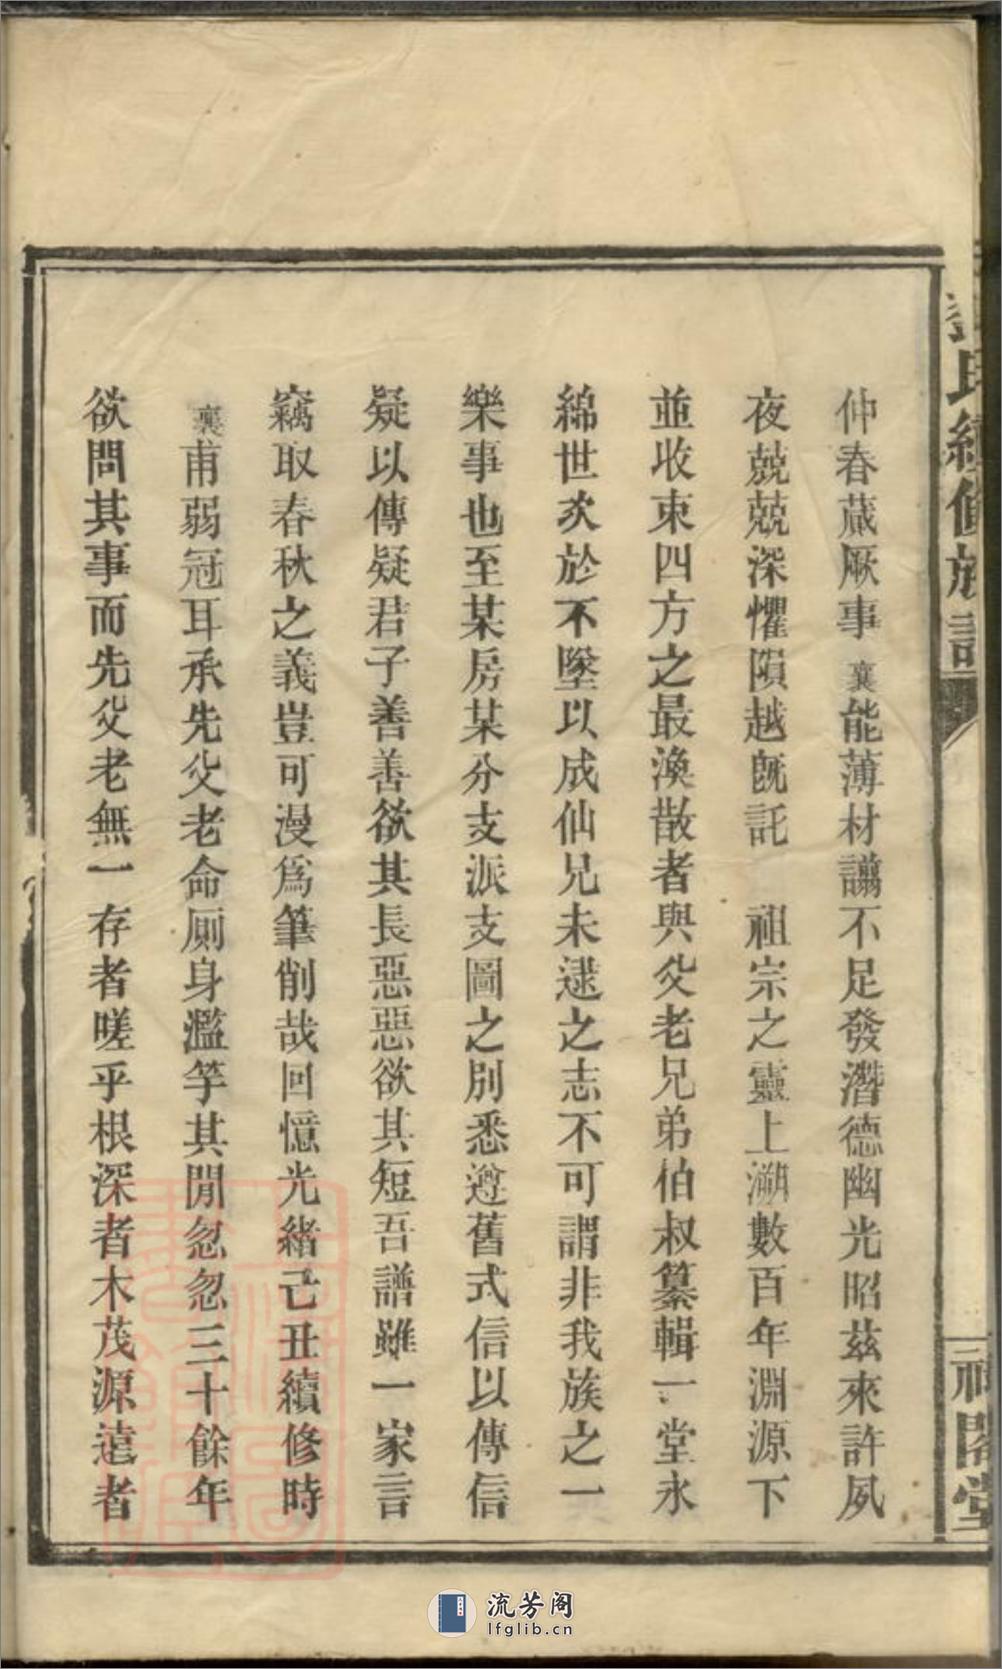 仲春蕆厥事襄能薄材譾不足發潛德幽光昭茲來許夙
夜兢兢深懼隕越旣託　祖宗之靈上溯數百年淵源下
並收束四方之最渙散者與父老兄弟伯叔纂輯一堂永
綿世次於不墜以成仙兄未逮之志不可謂非我族之一
樂事也至某房某分支派支圖之別悉遵舊式信以傳信
疑以傳疑君子善善欲其長惡惡欲其短吾譜雖一家言
竊取春秋之義豈可漫爲筆削哉回憶光緒己丑續修時
襄甫弱冠耳承先父老命厠身濫竽其閒忽忽三十餘年
欲問其事而先父老無一存者嗟乎根深者木茂源遠者
氏續修族譜
閣堂
流芳阁
lfglib.cn